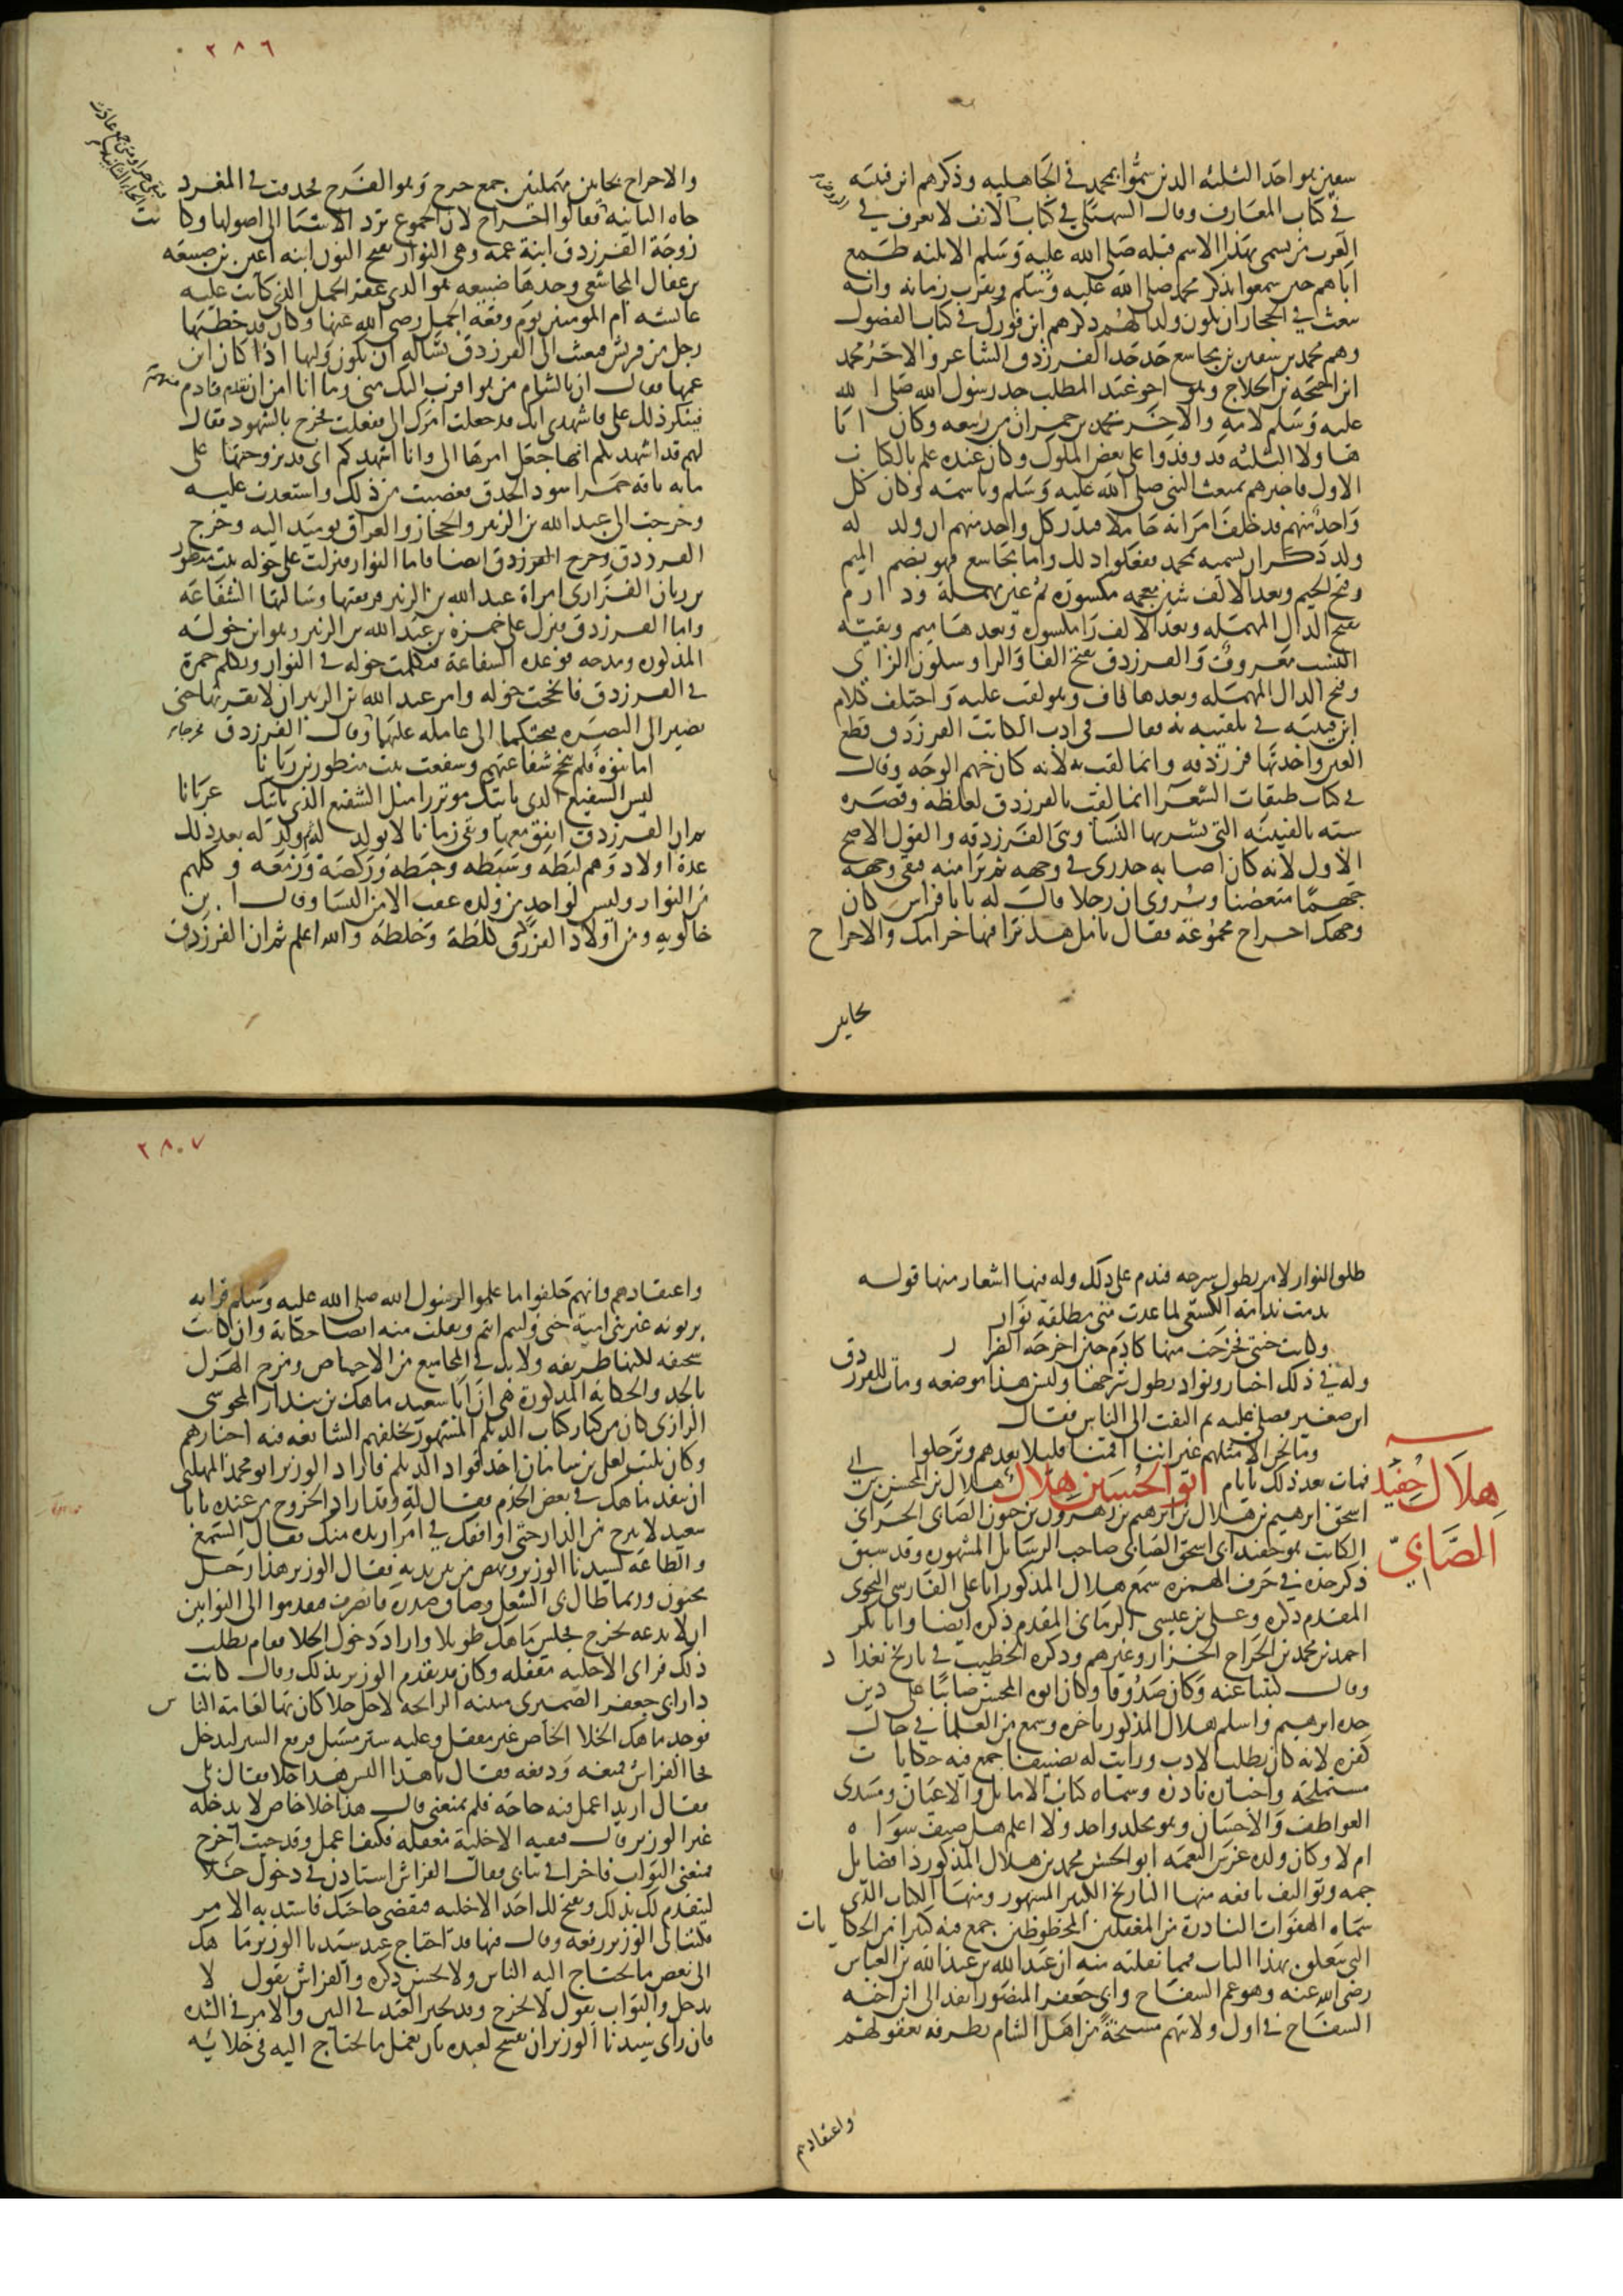 سفين هو احد الثلثه الذين سموا بمحمد في الجاهليه وذكرهم ابن قتيبه
في كتاب المعارف وقال السهيلي في كتاب الانف لا يعرف في
العرب من يسمى بهذا الاسم قبله صلى الله عليه وسلم الا ثلثه طمع
اباهم حين سمعوا بذكر محمد صلى الله عليه وسلم وبقرب زمانه وانه
يبعث في الحجاز ان يكون ولدا لهم ذكرهم ابن فورك في كتاب الفصول
وهم محمد بن سفين بن مجاشع جد جد الفرزدق الشاعر والاخر محمد
ابن احيحه بن الجلاح وهو اخو عبد المطلب جد رسول الله صلى الله
عليه وسلم لامه والاخر محمد بن حمران من ربيعه وكان ابا
هاولا الثلثه قد وفدوا على بعض الملوك وكان عنده علم بالكتاب
الاول فاخبرهم بمبعث النبي صلى الله عليه وسلم وباسمه وكان كل
واحد منهم قد خلف امراته حاملا فنذر كل واحد منهم ان ولد له
ولد ذكر ان يسميه محمد ففعلوا ذلك واما مجاشع فهو بضم الميم
وفتح الجيم وبعد الالف شين معجمه مكسوره ثم عين مهملة ودارم
بفتح الدال المهمله وبعد الالف را مكسوره وبعدها ميم وبقيه
النسب معروف والفرزدق بفتح الفا والرا وسكون الزاي
وفتح الدال المهمله وبعدها قاف وهو لقب عليه واختلف كلام
ابن قتيبه في تلقيبه به فقال في ادب الكاتب الفرزدق قطع
العجين واحدتها فرزدقه وانما لقب به لانه كان جهم الوجه وقال
في كتاب طبقات الشعرا انما لقب بالفرزدق لغلظه وقصره
شبه بالفتيته التي تشربها النسا وهي الفرزدقه والقول الاصح
الاول لانه كان اصابه جدري في وجهه ثم برا منه فبقى وجهه
جهما متغضنا ويروى ان رجلا قال له يا با فراس كان
وجهك احراح مجموعه فقال تامل هل ترا فيها حر امك والاحراح
بحايين
٢٨٦
والاحراح بحايين مهملتين جمع حرح وهو الفرج فحذفت في المفرد
حاه الثانيه فقالوا حر الجموع ترد الاشيا الى اصولها وكانت
زوجة الفرزدق ابنة عمه وهي النوار بفتح النون ابنه اعين بن صبيعه
بن عقال المجاشعي وجدها ضبيعه هو الذي عقر الجمل الذي كانت عليه
عائشه ام المومنين يوم وقعه الجمل رضي الله عنها وكان قد خطبها
رجل من قريش فبعثت الى الفرزدق تساله ان يكون وليها اذا كان ابن
عمها فقال ان بالشام من هو اقرب اليك مني وما انا امن ان يقدم قادم منهم
فينكر ذلك علي فاشهدي انك قد جعلت امرك الي ففعلت فخرج بالشهود فقال
لهم قد اشهدتكم انها جعلت امرها الي وانا اشهدكم اني قد تزوجتها على
مايه ناقه حمرا سود الحدق فغضبت من ذلك واستعدت عليه
وخرجت الى عبد الله بن الزبير والحجاز والعراق يوميذ اليه وخرج
الفرزدق وخرج الفرزدق ايضا فاما النوار فنزلت على خوله بنت منظور
بن زبان الفزاري امراة عبد الله بن الزبير فرققتها وسالتها الشفاعه
واما الفرزدق فنزل على حمزه بن عبد الله بن الزبير وهو ابن خوله
المذكوره ومدحه فوعده الشفاعه فتكلمت خوله في النوار وتكلم حمزة
في الفرزدق فانجحت خوله وامر عبد الله بن الزبير ان لا يقربها حتى
يصير الى البصره فيحتكما الى عامله عليها وقال الفرزدق
اما بنوه فلم تنجح شفاعتهم وشفعت بنت منظور بن زبانا
ليس الشفيع الذي ياتيك موتزرا مثل الشفيع الذي ياتيك عريانا
ثم ان الفرزدق اتفق معها وبقي زمانا لا يولد له ثم ولد له بعد ذلك
عدة اولاد وهم لبطه وسبطه وخبطه وركضه وزمعه وكلهم
من النوار وليس لواحد من ولده عقب الا من النسا وقال ابن
خالويه ومن اولاد الفرزدق كلطة وخلطه والله اعلم ثم ان الفرزدق
طلق النوار لامر يطول شرحه فندم على ذلك وله فيها اشعار منها قوله
ندمت ندامة الكسعي لما غدت مني مطلقه نوار
وكانت جنتي فخرجت منها كادم حين اخرجه
وله في ذلك اخبار ونوادر يطول شرحها وليس هذا موضعه ومات للفرزدق
ابن صغير فصلى عليه ثم التفت الى الناس فقال
وما نحن الا مثلهم غير اننا اقمنا قليلا بعدهم وترحلوا
فمات بعد ذلك بايام ابو الحسين هلال هلال بن المحسن بن ابي
هلال حفيد
الصابي
اسحق ابرهيم بن هلال بن ابرهيم بن زهرون بن حبون الصابي الحراني
الكاتب هو حفيد ابي اسحق الصابي صاحب الرسائل المشهوره وقد سبق
ذكر جده في حرف الهمزه سمع هلال المذكور ابا علي الفارسي النحوي
المقدم ذكره وعلي بن عيسى الرماني المقدم ذكره ايضا وابا بكر
احمد بن محمد بن الجراح الخزار وغيرهم وذكره الخطيب في تاريخ بغداد
وقال كتبنا عنه وكان صدوقا وكان ابوه المحسن صابيا على دين
جده ابرهيم واسلم هلال المذكور باخره وسمع من العلما في حال
كفره لانه كان يطلب الادب ورايت له تصنيفا جمع فيه حكايات
مستملحه واخبار نادره وسماه كتاب الاماثل والاعيان ومبتدى
العواطف والاحسان وهو مجلد واحد ولا اعلم هل صنف سواه
ام لا وكان ولده غرس النعمه ابو الحسن محمد بن هلال المذكور ذا فضايل
جمه وتواليف نافعه منها التاريخ الكبير المشهور ومنها الكتاب الذي
سماه الهفوات النادرة من المغفلين المحظوظين جمع فيه كثيرا من الحكايات
التي تتعلق بهذا الباب فمما نقلته منه ان عبد الله بن علي بن عبد الله بن العباس
رضي الله عنه وهو عم السفاح وابي جعفر المنصور انفذ الى ابن اخيه
السفاح في اول ولايتهم مشيخة من اهل الشام يطرفه بعقولهم
واعتقادهم
٢٨٧
واعتقادهم وانهم حلفوا ما علموا لرسول الله صلى الله عليه وسلم قرابه
يرثونه غير بني امية حتى وليتم انتم ونقلت منه ايضا حكاية وان كانت
سخيفه لكنها ظريفه ولا بد في المجاميع من الاحماض ومزج الهزل
بالجد والحكاية المذكورة هي ان ابا سعيد ماهك بن بندار المجوسي
الرازي كان من كبار كتاب الديلم المشهور تخلفهم الشايعه فيه اخبارهم
وكان يكتب لعلي بن سامان احد قواد الديلم فاراد الوزير ابو محمد المهلبي
ان ينفذ ماهك في بعض الخدم فقال له وقد اراد الخروج من عنده يا با
سعيد لا تبرح من الدار حتى اوافقك في امر اريده منك فقال السمع
والطاعه لسيدنا الوزير ونهض من بين يديه فقال الوزير هذا رجل
مجنون وربما طال بي الشغل وضاق صدره فانصرف فتقدموا الى البوابين
ان لا يدعه يخرج فجلس ماهك طويلا واراد دخول الخلا فقام يطلب
ذلك فراى الاخليه مقفله وكان قد تقدم الوزير بذلك وقال كانت
دار ابي جعفر الصميري منتنه الرايحه لاجل خلا كان بها لعامة الناس
فوجد ماهك الخلا الخاص غير مقفل وعليه ستر مسبل فرفع الستر ليدخل
فجا الفراش فمنعه ودفعه فقال يا هذا اليس هذا خلا فقال بلى
فقال اريد اعمل فيه حاجه فلم تمنعني قال هذا خلا خاص لا يدخله
غير الوزير قال فبقيه الاخلية مقفله فكيف اعمل وقد جيت اخرج
فمنعني البواب فاخرا في ثيابي فقال الفراش استاذن في دخول خلا
ليتقدم لك بذلك ويفتح لك احد الاخليه فتقضي حاجتك فاشتد به الامر
فكتب الى الوزير رقعه وقال فيها قد احتاج عبد سيدنا الوزير ماهك
الى بعض ما يحتاج اليه الناس ولا يحسن ذكره والفراش يقول لا
تدخل والبواب يقول لا تخرج وقد تحير العبد في البين والامر في الشده
فان راى سيدنا الوزير ان يفسح لعبده بان يعمل ما يحتاج اليه في خلائه